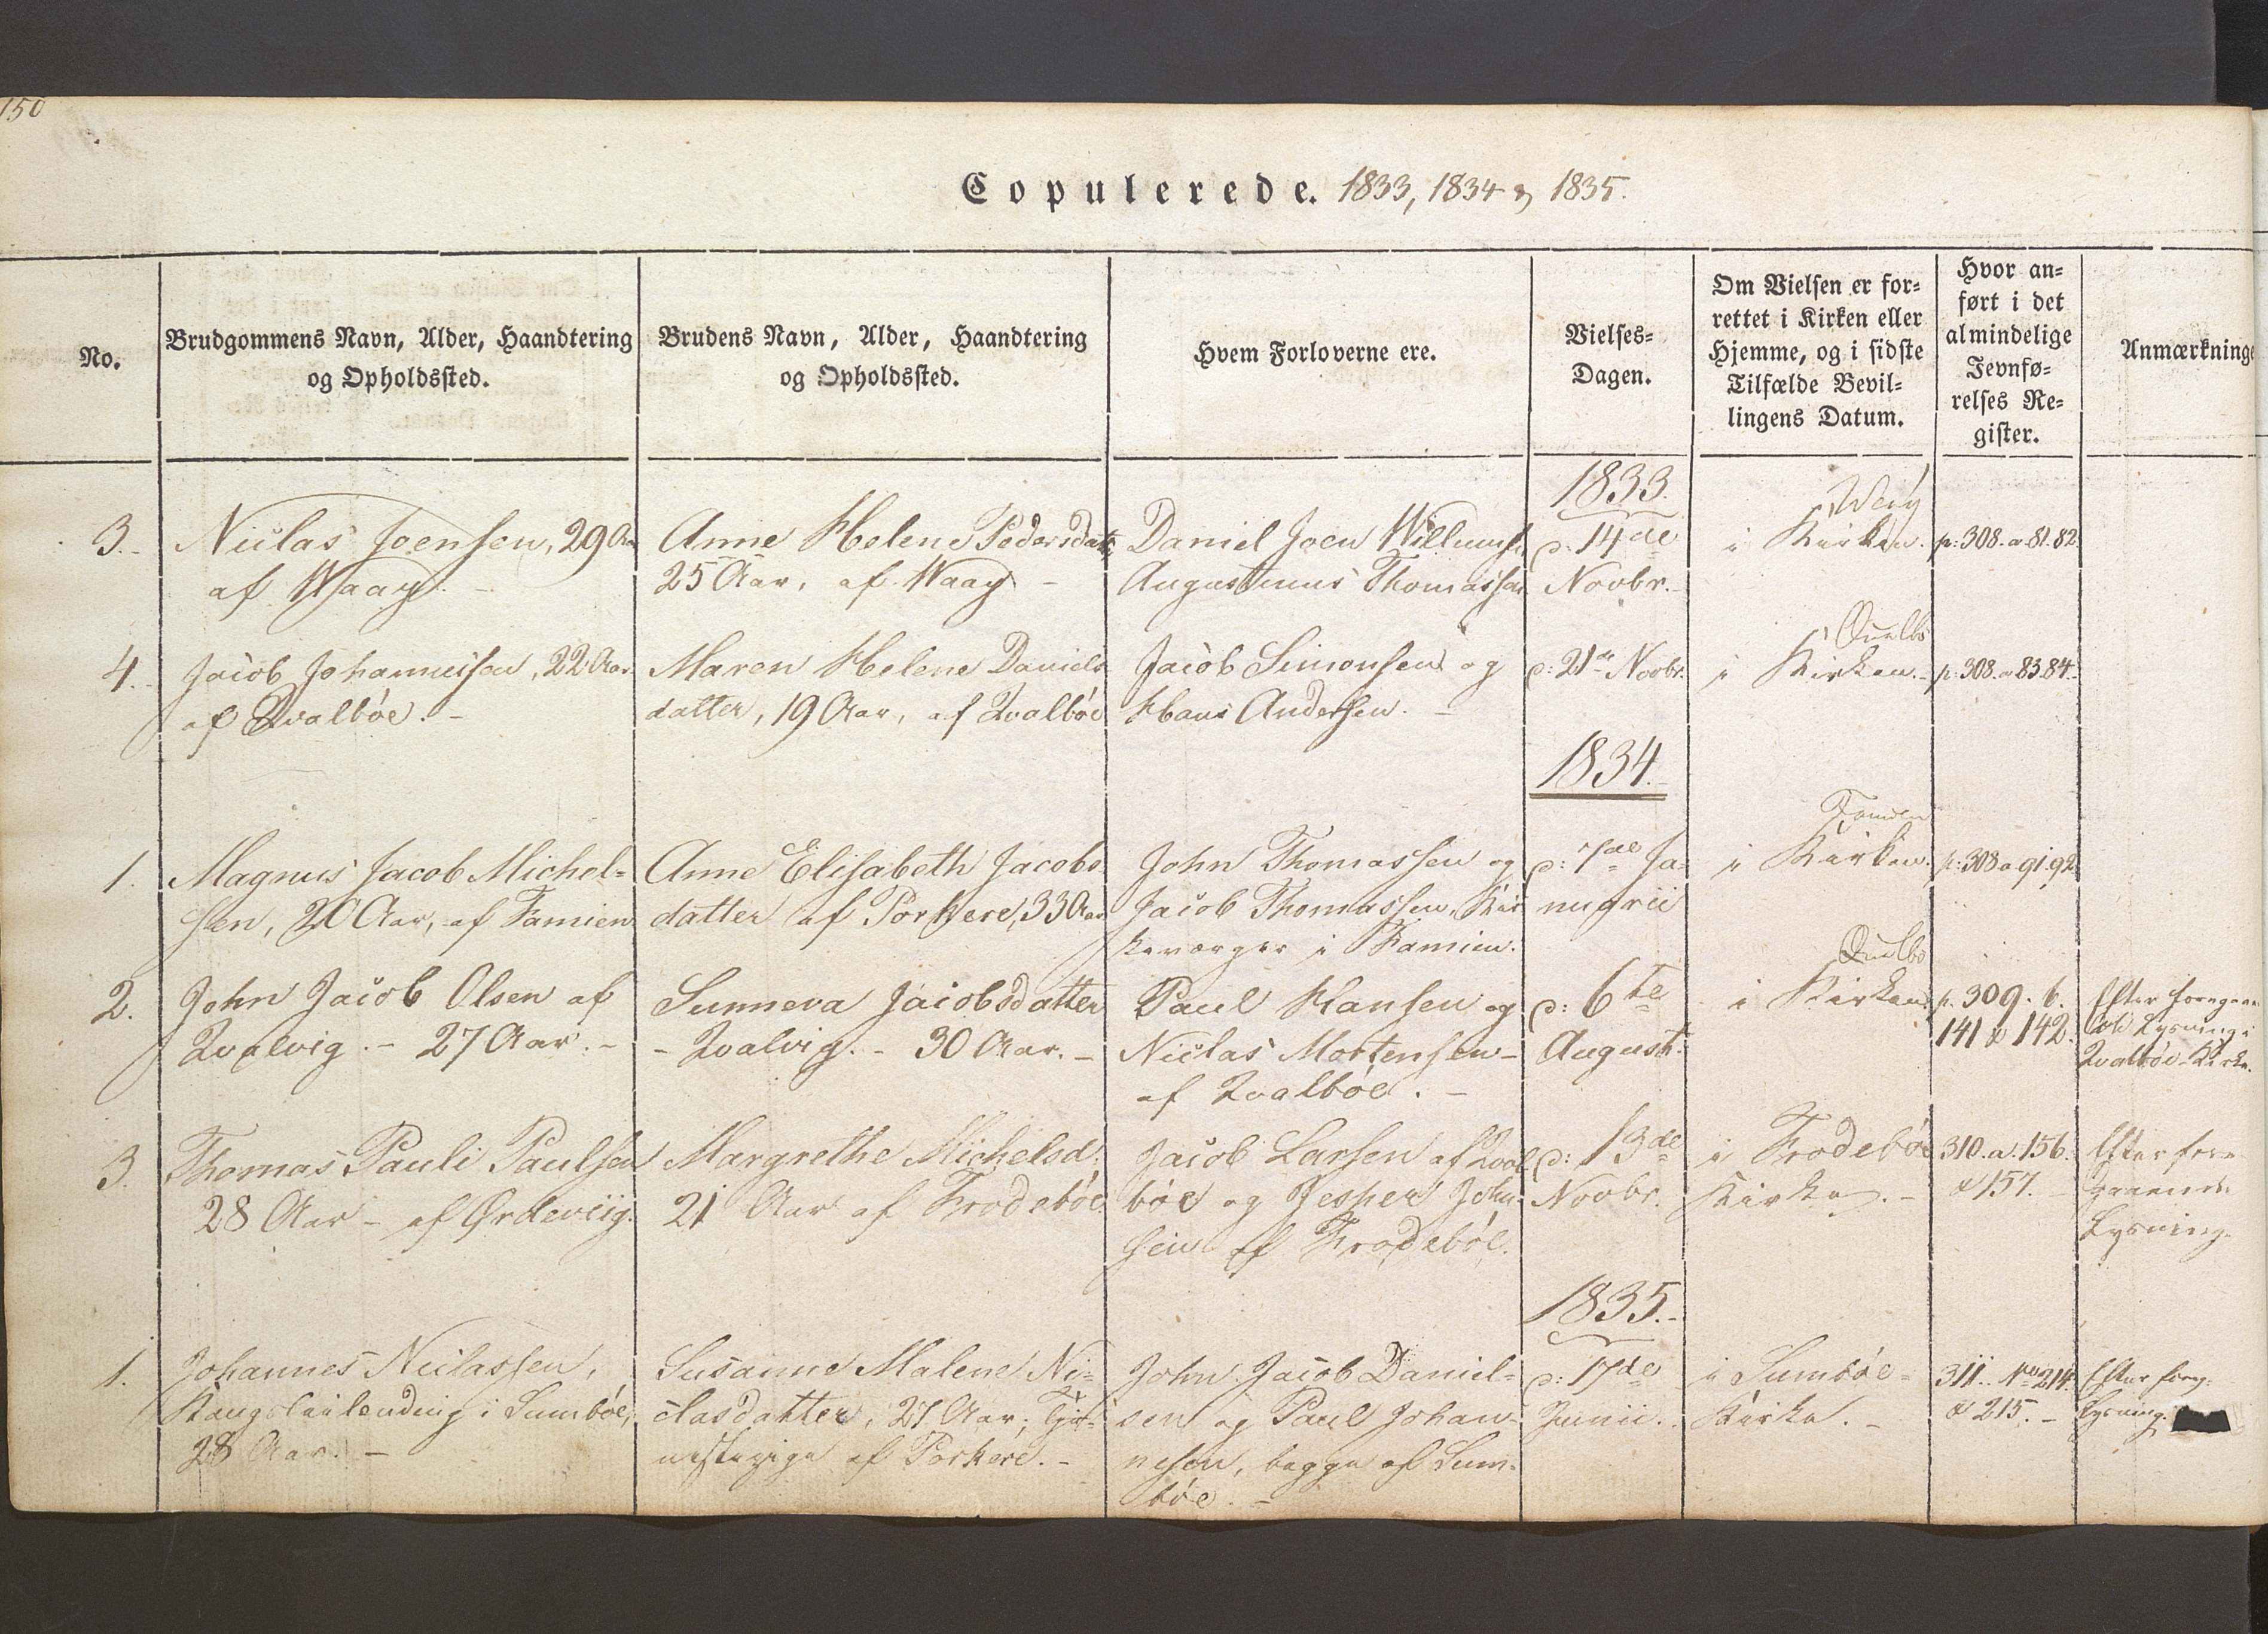 150
Copulerede. 1833, 1834 & 1835.
No.
Brudgommens Navn, Alder, Haandtering
og Opholdssted.
Brudens Navn, Alder, Haandtering
og Opholdssted.
Hvem Forloverne ere.
Vielses-
Dagen.
Om Vielsen er for-
rettet i Kirken eller
Hjemme, og i sidste
Tilfælde Bevil-
lingens Datum.
Hvor an-
ført i det
almindelige
Jevnfø-
relses Re-
gister.
Anmærkninge
1833.
3.
Niclas Joensen, 29 Aar
af Waag.
Anne Helene Pedersdatt
25 Aar, af Waag
Daniel Joen Willums.
Augustinus Thomassen
d: 14de
Novbr.
Waag
i Kirken.
p: 308. a 81. 82.
4.
Jacob Johannesen, 22 Aar
af Qvalböe.
Maren Helene Daniels
datter, 19 Aar, af Qvalböe
Jacob Simonsen og
Hans Andersen.
d: 21de Novbr.
Qualbö
i Kirken.
p: 308. a 83 84.
1834.
1.
Magnus Jacob Michel-
sen, 20 Aar, af Famien
Anne Elisabeth Jacobs
datter af Porkere, 33 Aar
John Thomassen og
Jacob Thomassen, Kir
keværger i Famien.
d: 7de Ja-
nuarii
Famien
i Kirken.
p: 308 a 91. 92.
2.
John Jacob Olsen af
Qvalvig. - 27 Aar. -
Sunneva Jacobsdatter
- Qvalvig. - 30 Aar. -
Paul Hansen og
Niclas Mortensen
af Qvalböe. -
d: 6te
August.
Qualbö
i Kirken
p. 309. b.
141 & 142.
Efter foregaaen
de Lysning i
Qvalböe Kirke.
3.
Thomas Pauli Paulsen
28 Aar - af Ørdeviig.
Margrethe Michelsd.
21 Aar af Frodeböe
Jacob Larsen af Qval-
böe og Jesper John-
sen af Frodeböe.
d: 13de
Novbr.
i Frodeböe
Kirke. -
310. a. 156.
& 157.
Efter fore
gaaende
Lysning.
1835.
1.
Johannes Niclassen,
i Sumböe,
28 Aar. -
Susanne Malene Ni-
clasdatter, 27 Aar, Tje-
nestepige af Porkere. -
John Jacob Daniel-
sen og Paul Johan-
nesen, begge af Sum-
böe. -
d: 17de
Junii.
i Sumböe-
Kirke. -
311. No 214.
& 215. -
Efter foreg.
Lysning.